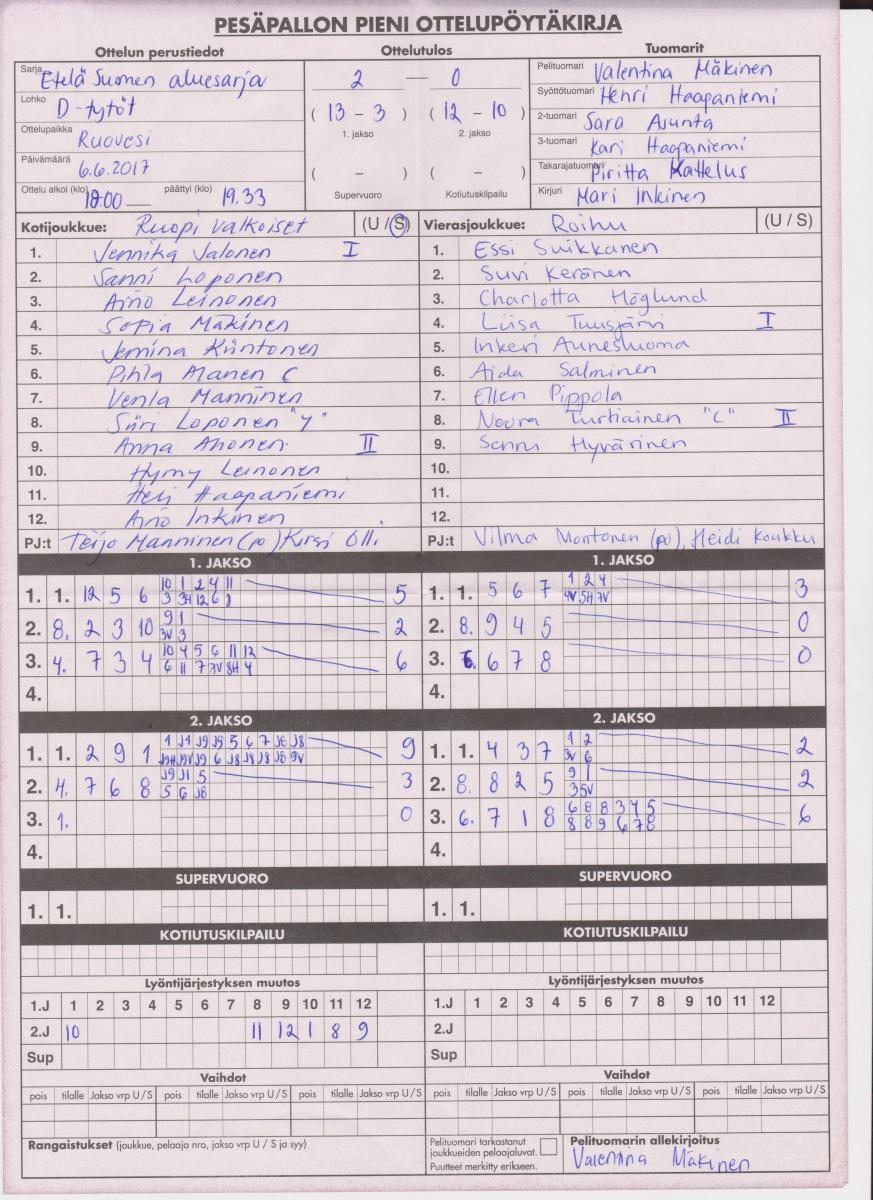 PESÄPALLON PIENI OTTELUPÖYTÄKIRJA
Ottelun perustiedot
Sarja Etelä Suomen aluesarja
Lohko D-tytöt
Ottelupaikka Ruovesi
Päivämäärä 6.6.2017
Ottelu alkoi (klo) 18.00 päättyi (klo) 19.33
Ottelutulos
2 — 0
( 13 - 3 ) ( 12 - 10 )
1. jakso 2. jakso
( – ) ( – )
Supervuoro Kotiutuskilpailu
Tuomarit
Pelituomari Valentina Mäkinen
Syöttötuomari Henri Haapaniemi
2-tuomari Sara Asunta
3-tuomari Kari Haapaniemi
Takarajatuomari Piritta Kattelus
Kirjuri Mari Inkinen
Kotijoukkue: Ruopi Valkoiset (U / S)
1. Vennika Valonen I
2. Sanni Loponen
3. Aino Leinonen
4. Sofia Mäkinen
5. Jemina Kiintonen
6. Pihla Alanen C
7. Venla Manninen
8. Siiri Loponen "Y"
9. Anna Ahonen II
10. Hymy Leinonen
11. Heli Haapaniemi
12. Aino Inkinen
PJ:t Teijo Manninen (po) Kirsi Olli
Vierasjoukkue: Roihu (U / S)
1. Essi Suikkanen
2. Suvi Keränen
3. Charlotta Höglund
4. Liisa Tuusjärvi I
5. Inkeri Aunesluoma
6. Aida Salminen
7. Ellen Pippola
8. Noora Turtiainen "C" II
9. Sanni Hyvärinen
10.
11.
12.
PJ:t Vilma Montonen (po), Heidi Koukku
1. JAKSO
1. 1. 12 5 6 10 1 2 4 11 5
3 3H 12 6 8
2. 8. 2 3 10 9 1 2
3V 3
3. 4. 7 3 4 10 4 5 6 11 12 6
6 11 7 7V 8H 4
4.
1. JAKSO
1. 1. 5 6 7 1 2 4 3
4V 5H 7V
2. 8. 9 4 5 0
3. 6. 6 7 8 0
4.
2. JAKSO
1. 1. 2 9 1 1 J1 J9 J9 5 6 7 J6 J8 9
J9H J9V J9 6 J8 J8 J8 J8 9V
2. 4. 7 6 8 J9 J1 5 3
5 6 J8
3. 1. 0
4.
2. JAKSO
1. 1. 4 3 7 1 2 2
3V 6
2. 8. 8 2 5 9 1 2
3 5V
3. 6. 7 1 8 6 8 8 3 4 5 6
8 8 9 6 7 8
4.
SUPERVUORO
1. 1.
SUPERVUORO
1. 1.
KOTIUTUSKILPAILU
KOTIUTUSKILPAILU
Lyöntijärjestyksen muutos
1.J 1 2 3 4 5 6 7 8 9 10 11 12
2.J 10 11 12 1 8 9
Sup
Lyöntijärjestyksen muutos
1.J 1 2 3 4 5 6 7 8 9 10 11 12
2.J
Sup
Vaihdot
pois tilalle Jakso vrp U / S pois tilalle Jakso vrp U / S pois tilalle Jakso vrp U / S
Vaihdot
pois tilalle Jakso vrp U / S pois tilalle Jakso vrp U / S pois tilalle Jakso vrp U / S
Rangaistukset (joukkue, pelaaja nro, jakso vrp U / S ja syy)
Pelituomari tarkastanut
joukkueiden pelaajaluvat.
Puutteet merkitty erikseen.
Pelituomarin allekirjoitus
Valentina Mäkinen